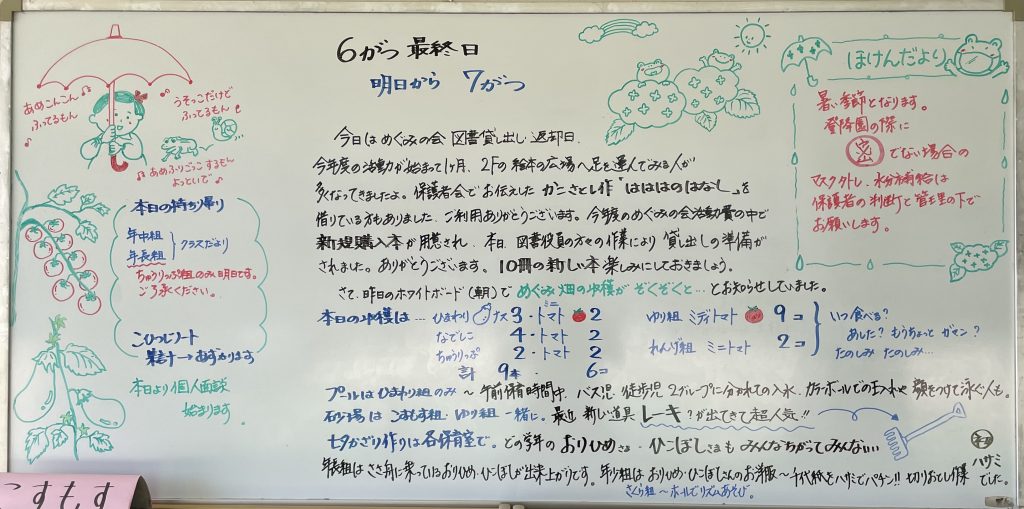 6がつ 最終日
明日から 7がつ
あめこんこん
ふってるもん
うそっこだけど
ふってるもん
あめふりごっこするもん
よっといで
本日の持ち帰り
年中組
年長組
クラスだより
ちゅうりっぷ組のみ明日です。
ご了承ください。
こひつじノート
集計→あずかります
本日より個人面談
始まります
今日はめぐみの会 図書貸し出し・返却日.
今年度の活動が始まって1ヶ月. 2Fの絵本の広場へ足を運んでみる人が
多くなってきましたよ。保護者会でお伝えした かこさとし作「はははのはなし」を
借りている方もありました. ご利用ありがとうございます。今年度のめぐみの会活動費の中で
新規購入本が用意され. 本日. 図書役員の方々の作業により 貸し出しの準備が
されました。ありがとうございます。10冊の新しい本楽しみにしておきましょう。
さて、昨日のホワイトボード(朝)で めぐみ畑の収穫が ぞくぞくと… とお知らせしていました。
本日の収穫は… ひまわり ナス 3・ミニトマト 2
なでしこ 4・トマト 2
ちゅうりっぷ 2・トマト 2
計 9本・ 6コ
ゆり組 ミディトマト 9コ
れんげ組 ミニトマト 2コ
いつ食べる?
あした? もうちょっと ガマン?
たのしみ たのしみ…
プールは ひまわり組のみ 〜 午前保育時間中. バス児 徒歩児 2グループに分かれての入水. カラーボールでの玉入れや 顔をつけて泳ぐ人も。
石砂場は こすもす組・ゆり組 一緒に。最近 新しい道具 レーキ?が出てきて超人気!!
七夕かざり作りは各保育室で。どの学年の おりひめさま・ひこぼしさまも みんなちがってみんないい…
年長組は ささ舟に乗っているおりひめ・ひこぼしが出来上がりです。年少組は おりひめ・ひこぼしさんのお洋服〜千代紙をハサミでパチン!! 切りおとし作業 でした。
初 ハサミ
さくら組〜ホールでリズムあそび。
ほけんだより
暑い季節となります。
登降園の際に
密 でない場合の
マスク外し. 水分補給は
保護者の判断と管理の下で
お願いします。
こすもす